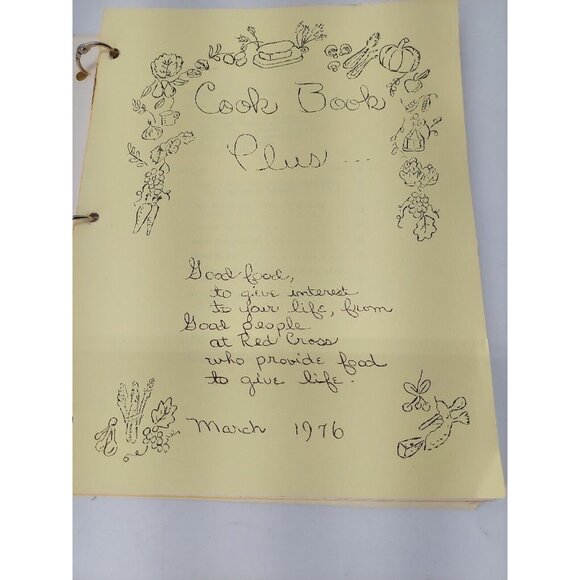 Cook Book
Plus...
Good food,
to give interest
to your life, from
Good people
at Red Cross
who provide food
to give life.
March 1976